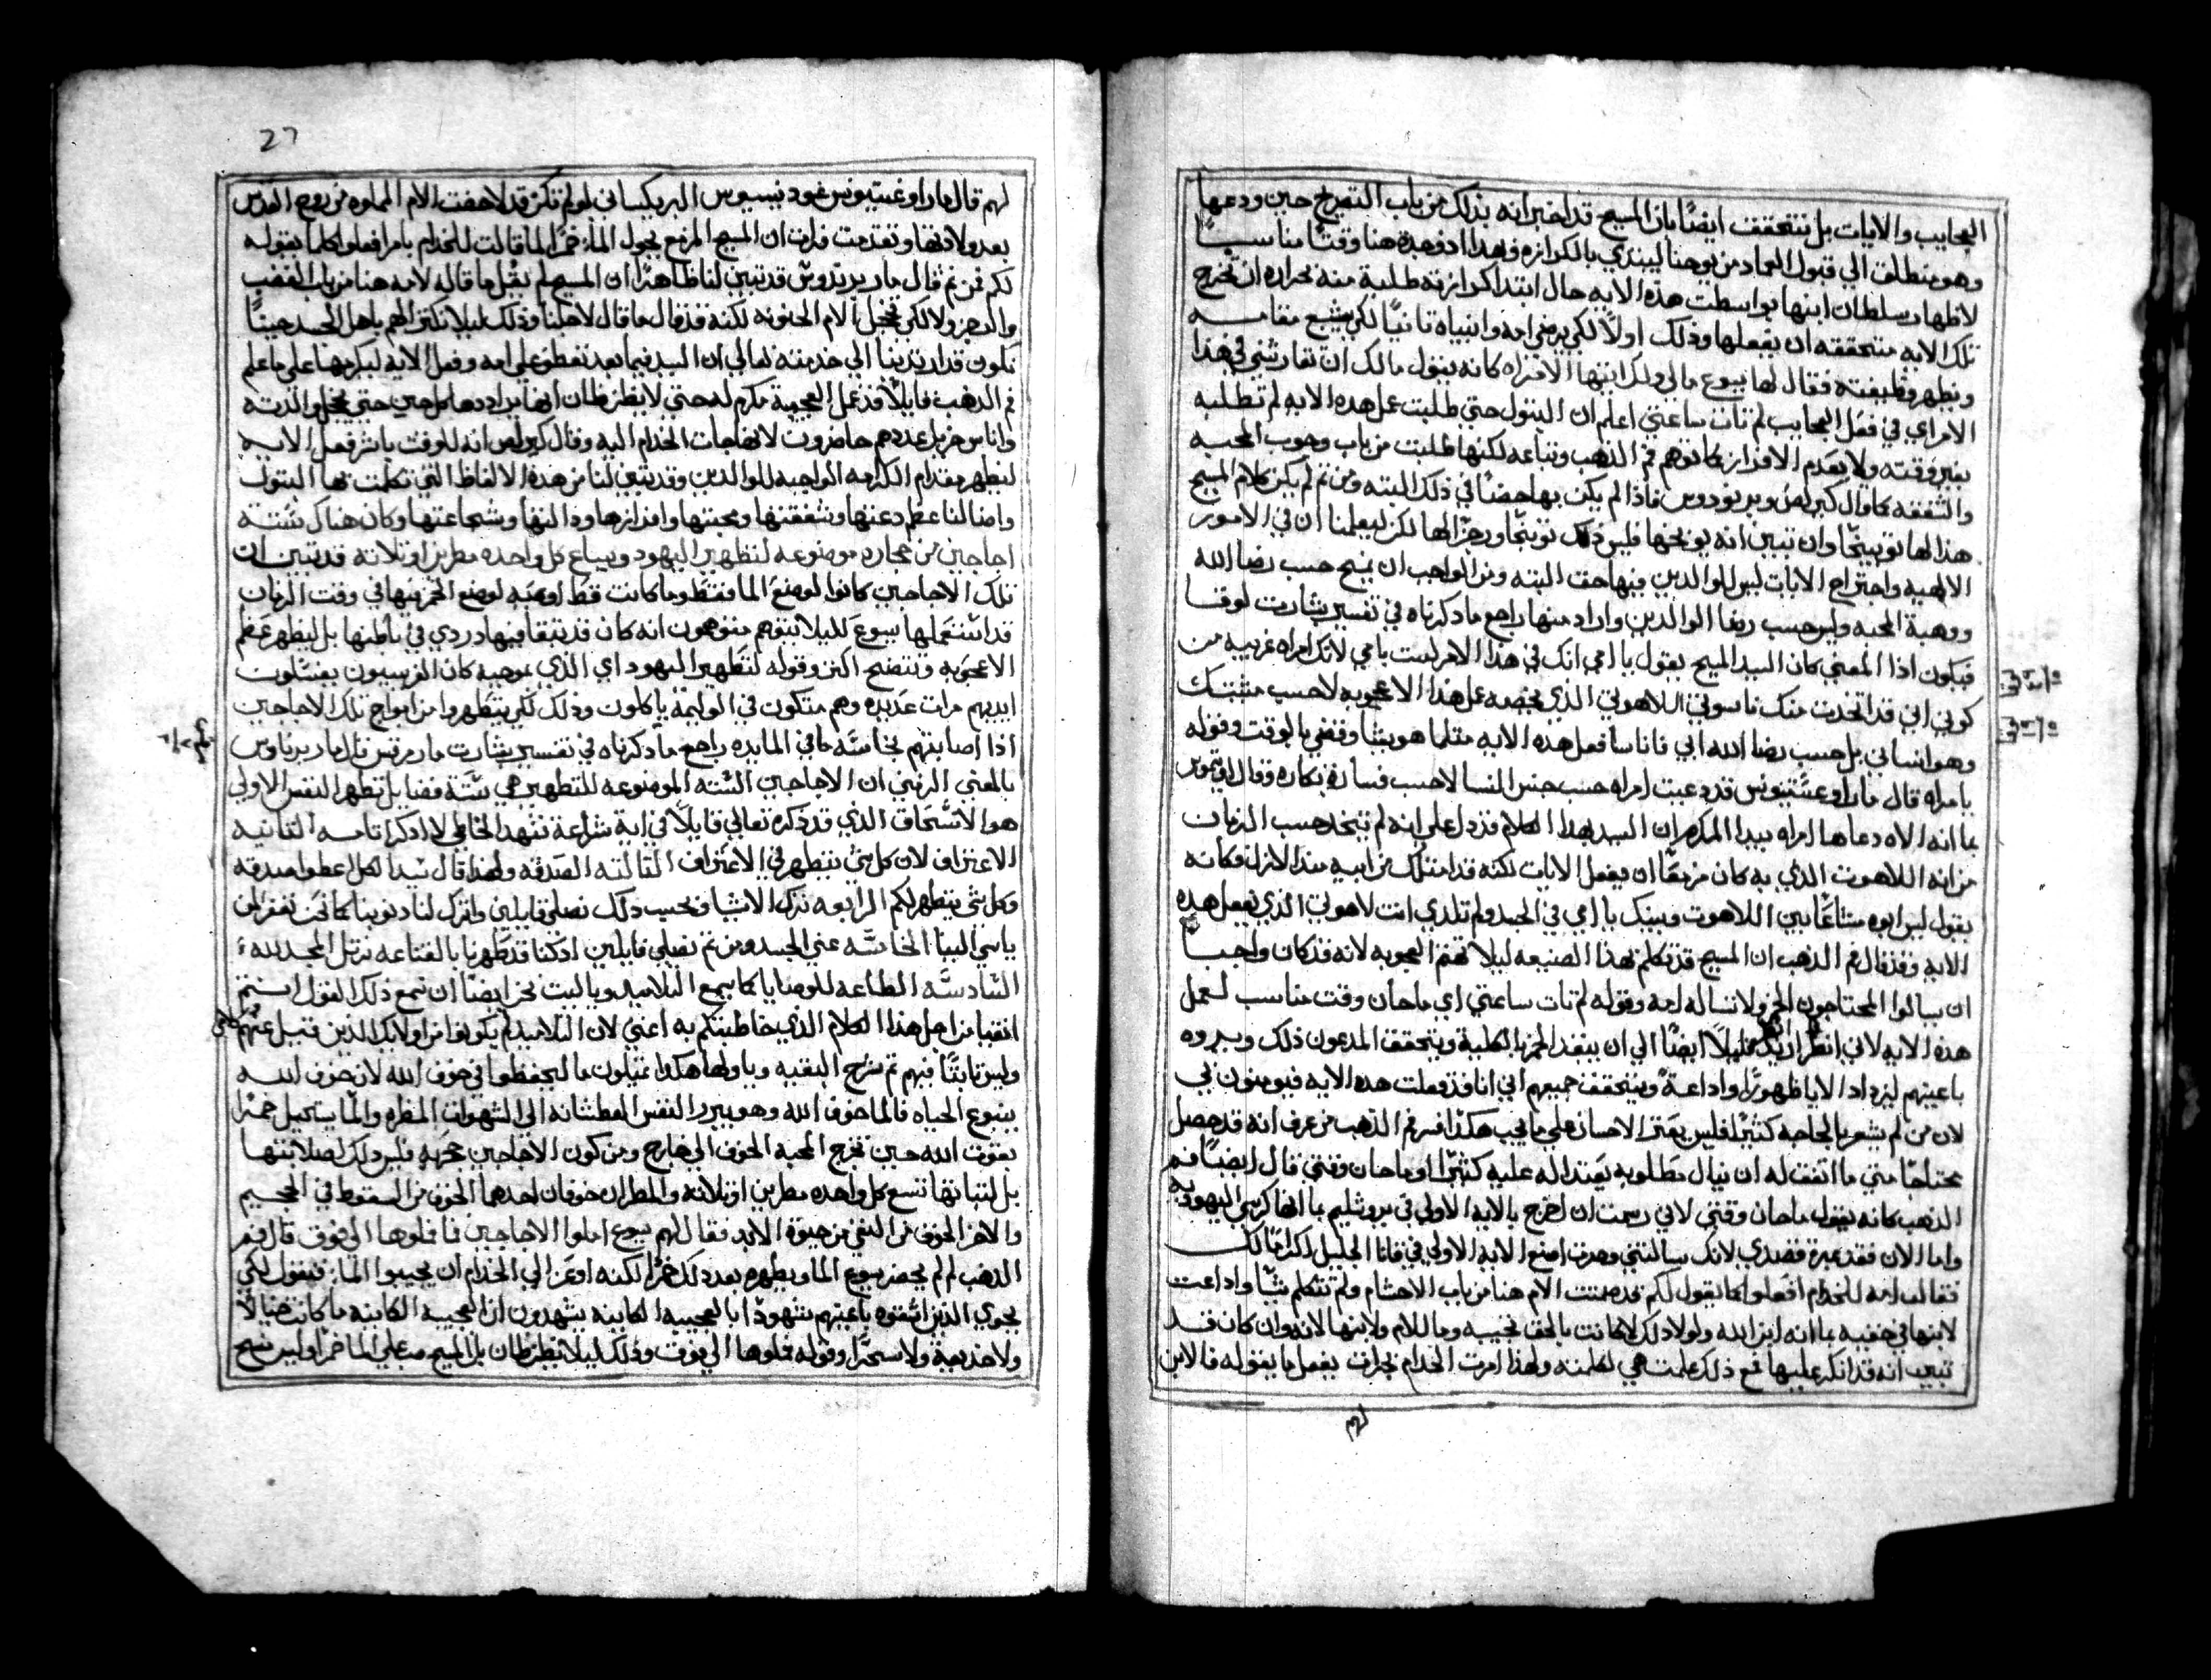 العجايب والايات بل نتحقق ايضًا بان المسيح قد اخبر انه بذلك من باب التصريح حين ودعها
وهو منطلق الي قبول العماد من يوحنا ليبتدي بالكرازه وهذا اذ وجده هنا وقتًا مناسبًا
لاظهار سلطان ابنها بواسطت هذه الايه حال ابتدا كرازته طلبة منه بحراره ان تخرج
تلك الايه متحققه ان يفعلها وذلك اولًا لكي يرضي امه وانبياه ثانيًا لكي يشبع مقامه
ويظهر وظيفته فقال لها يسوع مالي ولك ايتها الامراه كانه يقول مالك ان تشاركيني في هذا
الامر اي في فعل العجايب لم تات ساعتي اعلم ان البتول حتي طلبت عمل هذه الايه لم تطلبه
بغير وقته ولا بعدم الافراز كما توهم فم الذهب وتباعه لكنها طلبت من باب وجوب المحبه
والشفقه كما قال كيرلص وبريودوس فاذا لم يكن بها حضًا في ذلك البته ومن ثم لم يكن كلام المسيح
هذا لها توبيخًا وان تبين انه يوبخها فليس ذلك توبيخًا وزجرًا لها لكن ليعلمنا ان في الامور
الالهيه واجتراح الايات ليس للوالدين فيها حق البته ومن الواجب ان يمنح حسب رضا الله
ووهبة المحبه وليس حسب رضا الوالدين وان اراد منها راجع ما ذكرناه في تفسير بشارت لوقا
فيكون اذا المعني كان السيد المسيح يقول يا امي انك في هذا الامر لست بامي لانك امراه غريبه من
كوني اني قد اتخذت منك ناسوتي اللاهوتي الذي يخصه عمل هذا الاعجوبه لا حسب مشيتك
وهو انساني بل حسب رضا الله ابي فانا سافعل هذه الايه مثلما هو يشا وقضي بالوقت وقوله
يا مراه قال مار اوغستينوس قد دعيت امراه حسب جنس النسا لا حسب فساد بكاره وقال اوتيموس
بما انه الاه دعاها امراه بيدا المكرم ان السيد بهذا الكلام قد دل علي انه لم يتخذ حسب الزمان
من انه اللاهوت الذي به كان مزمعًا ان يفعل الايات لكنه قد امتلك من ابيه منذ الازل فكانه
يقول ليس ابوه مشاعًا بين اللاهوت وبينك يا امي في الجسد ولم تلدي انت لاهوتي الذي يفعل هذه
الايه وقد قال فم الذهب ان المسيح قد تكلم بهذا الصنيعه ليلا تتهم العجوبه لانه قد كان واجبًا
ان يسالوا المحتاجون الخمر ولا تساله امه وقوله لم تات ساعتي اي ما حان وقت مناسب لعمل
هذه الايه لاني انظر اريد قليلًا ايضًا الي ان ينفد الخمر بالكليه ويتحقق المدعون ذلك ويروه
باعينهم ليزداد الايا ظهورًا واداعة ويتحقق جميعهم اني انا قد فعلت هذه الايه فيومنون بي
لان من لم يشعر بالحاجه كثيرًا فليس يعتبر الاحسان علي ما يجب هكذا فسر فم الذهب من عرف انه قد حصل
محتاجًا متي ما اتفق له ان ينال مطلوبه يعتد اله عليه كثيرًا او ما حان وقتي قال ايضًا فم
الذهب كانه يقول ما حان وقتي لاني رسمت ان اخرج بالايه الاولي في يروشليم بما انها كرسي اليهوديه
واما الان فقد غيرة قصدي لانك سالتيني وصرت اصنع الايه الاولي في قانا الجليل اكرامًا لك
فقالت امه للخدام افعلوا كما يقول لكم قد صمتت الام هنا من باب الاحتشام ولم تتكلم شيًا واداعت
لابنها في حقيه بما انه ابن الله ولولا ذلك لكانت بالحق تجيبه وما للام ولابنها لانه وان كان قد
تبين انه قد انكر عليها مع ذلك علمت هي لكلمته ولهذا امرت الخدام بحراره يفعل ما يقوله فالابن
لهم
27
لهم قال مار اوغستينوس غوديسيوس البريكسياني لو لم تكن قد لاحظت الام المملوه من روح القدس
بعد ولادتها وتقدمت فرات ان المسيح المزمع يحول الماء خمرًا لما قالت للخدام بامر افعلوا كلما يقوله
لكم فمن ثم قال مار برندوس قد تبين لنا ظاهرًا ان المسيح لم يقل ما قاله لامه هنا من باب الغضب
والضجر ولا لكي تخجل الام الحنونه لكنه قد قال ما قال لاجلنا وذلك ليلا نكترالهم باهل الجسد حيثما
نكون قد ارتدينا الي خدمته تعالي ان السيد فيما بعد تعطف علي امه وفعل الايه ليكرمها علي ما علم
فم الذهب قايلًا قد عمل العجيبة مكرم له حتي لا يظن ظان انها مراده كل حين حتي يخجل والدته
واناس جزيل عددهم حاضرون لانها جات الخدام اليه وقال كيرلص انه للوقت باشر فعل الايه
ليظهر مقدام الكرامه الواجبه للوالدين وقد تبين لنا من هذه الالفاظ التي تكلمت بها البتول
وامنا لنا عظم دعتها وشفقتها ومحبتها وافرازها ودالتها وشجاعتها وكان هناك ستة
اجاجين من حجاره موضوعه لتطهير اليهود ويسع كل واحده مطرين او ثلاثه قد تبين ان
تلك الاجاجين كانوا لوضع الما فقط وما كانت قط اوعيه لوضع الخمر فيها في وقت الزمان
قد استعملها يسوع لليلا يتوهم متوهمون انه كان قد تبقا فيها دردي في باطنها بل ليظهر عظم
الاعجوبه وتتضح اكثر وقوله لتطهير اليهود اي الذي بموجبه كان الفريسيون يغسلون
ايديهم مرات عديده وهم متكون في الوليمة ياكلون وذلك لكي يتطهروا من امواج تلك الاجاجين
اذا اصابتهم نجاسه ما في المايده راجع ما ذكرناه في تفسير بشارت مار مرقس قال مار برناردس
بالمعني الرمزي ان الاجاجين الستة الموضوعه للتطهير هي ستة فضايل تطهر النفس الاولي
هو الانسحاق الذي قد ذكره تعالي قايلًا في اية ساعة تنهد الخاطي لا اذكر اثامه الثانيه
الاعتراف لان كل شي يتطهر في الاعتراف الثالثه الصدقه ولهذا قال سيدنا لكل اعطوا صدقه
وكل شي يتطهر لكم الرابعه ترك الاشيا فبحسب ذلك نصلي قايلين واترك لنا ذنوبنا كما نحن نغفر لمن
ياسي الينا الخامسه عني الجسد ومن ثم نصلي قايلين اذ كنا قد تطهرنا بالقناعه نرتل المجد لله
السادسه الطاعه للوصايا كما يسمع التلاميد ويا ليت نحن ايضًا ان نسمع ذلك القول انتم
انقيا من اجل هذا الكلام الذي خاطبتكم به اعني لان التلاميد لم يكونوا من اوليك الذين قيل عنهم
وليس ثابتًا فيهم ثم شرح البقيه وياولها هكذا يمتلون ما ليحفظوا في خوف الله لان خوف الله
ينبوع الحياه فالما خوف الله وهو يبرد النفس العطشانه الي الشهوات المضره والما يستحيل خمرًا
بقوت الله حين تخرج المحبه الخوف الي خارج ومن كون الاجاجين حجريه فليس ذلك لصلابتها
بل لثباتها تسع كل واحده مطرين او ثلاثه والمطران خوفان احدهما الخوف من السقوط في الجحيم
والاخر الخوف من النفي من حيوة الابد فقال لهم يسوع املوا الاجاجين ما فملوها الي فوق قال فم
الذهب لم لم يحضر يسوع الما ويظهره بعد ذلك خمرًا لكنه اوعز الي الخدام ان يجيبوا الماء فيقول لكي
يحوي الذين استقوه باعينهم شهودًا بالعجيبه الكاينه يشهدون ان العجيبه الكاينه ما كانت خيالًا
ولا خديعة ولا سحرًا وقوله فملوها الي فوق وذلك ليلا يظن ظان بل المسيح صب علي الما خمرًا وليس شيح